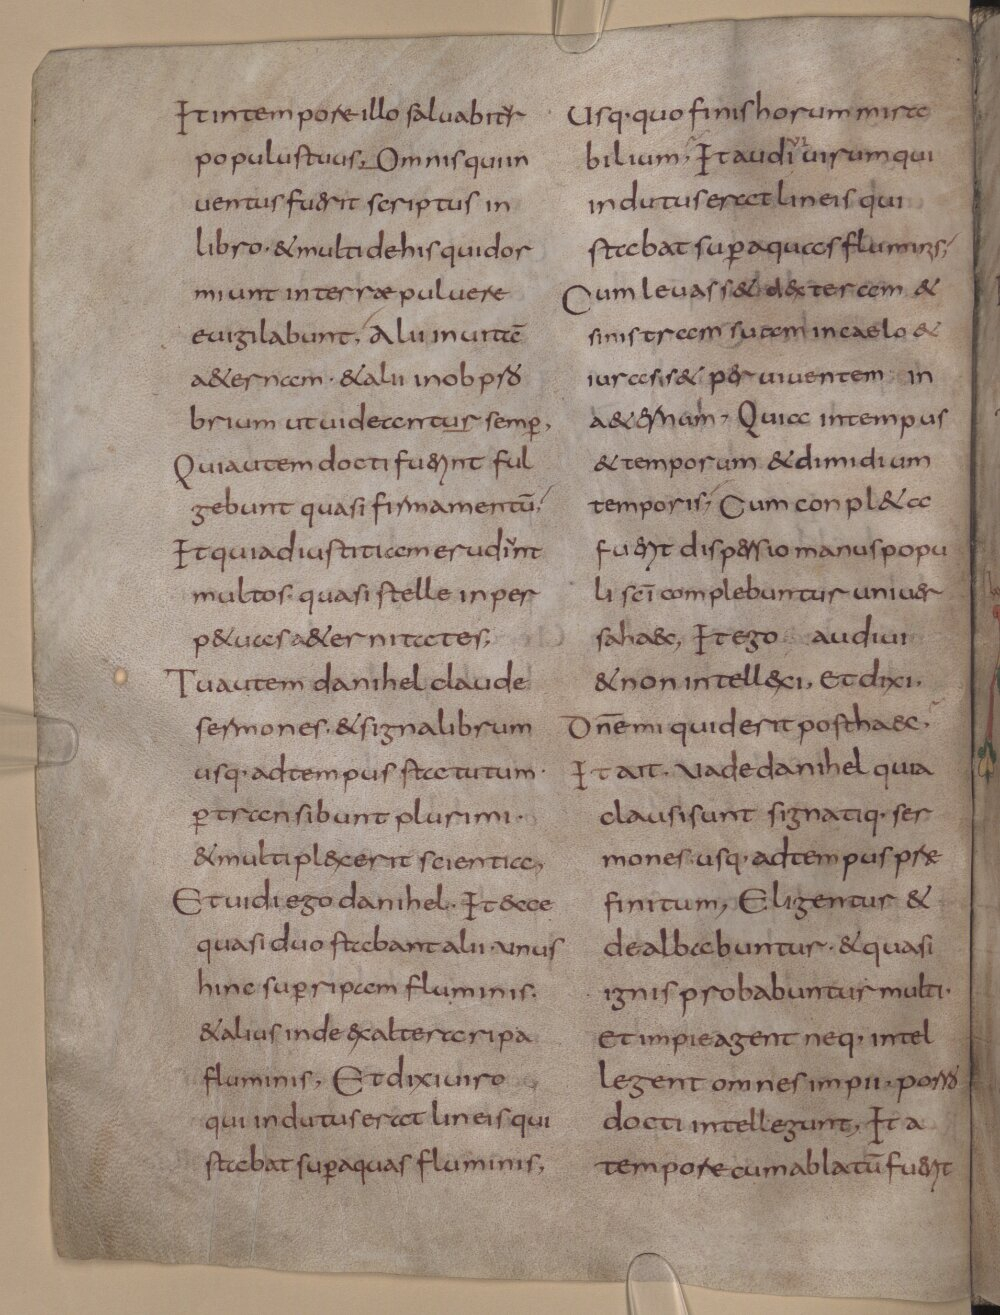 Et in tempore illo saluabitur
populus tuus, Omnis qui in
uentus fuerit scriptus in
libro. & multi de his qui dor
miunt in terræ puluere
euigilabunt, Alii in uitā
a&ernam. & alii in obpro
brium ut uideantur semp,
Qui autem docti fuerint ful
gebunt quasi firmamentū,
Et qui ad iustitiam erudiunt
multos. quasi stelle in per
p&uas a&ernitates,
Tu autem danihel claude
sermones. & signa librum
usq. ad tempus statutum.
ptransibunt plurimi.
& multiplex erit scientia,
Et uidi ego danihel. Et ecce
quasi duo stabant alii. unus
hinc sup ripam fluminis.
& alius inde & altera ripa
fluminis, Et dixi uiro
qui indutus erat lineis qui
stabat sup aquas fluminis,
Usq. quo finis horum mira
bilium, Et audiui uirum qui
indutus erat lineis qui
stabat sup aquas fluminis,
Cum leuass& dexteram &
sinistram suam in caelo &
iurass& per uiuentem in
a&ernum, Quia in tempus
& temporum & dimidium
temporis, Cum conpl&a
fuerit dispersio manus popu
li scī complebuntur uniuer
sa haec, Et ego audiui
& non intellexi, Et dixi.
Dn̄e mi quid erit post haec,
Et ait. uade danihel quia
clausi sunt signatiq. ser
mones usq. ad tempus præ
finitum, Eligentur &
dealbabuntur. & quasi
ignis probabuntur multi.
Et impie agent neq. intel
legent omnes impii. porro
docti intellegunt, Et a
tempore cum ablatū fuerit